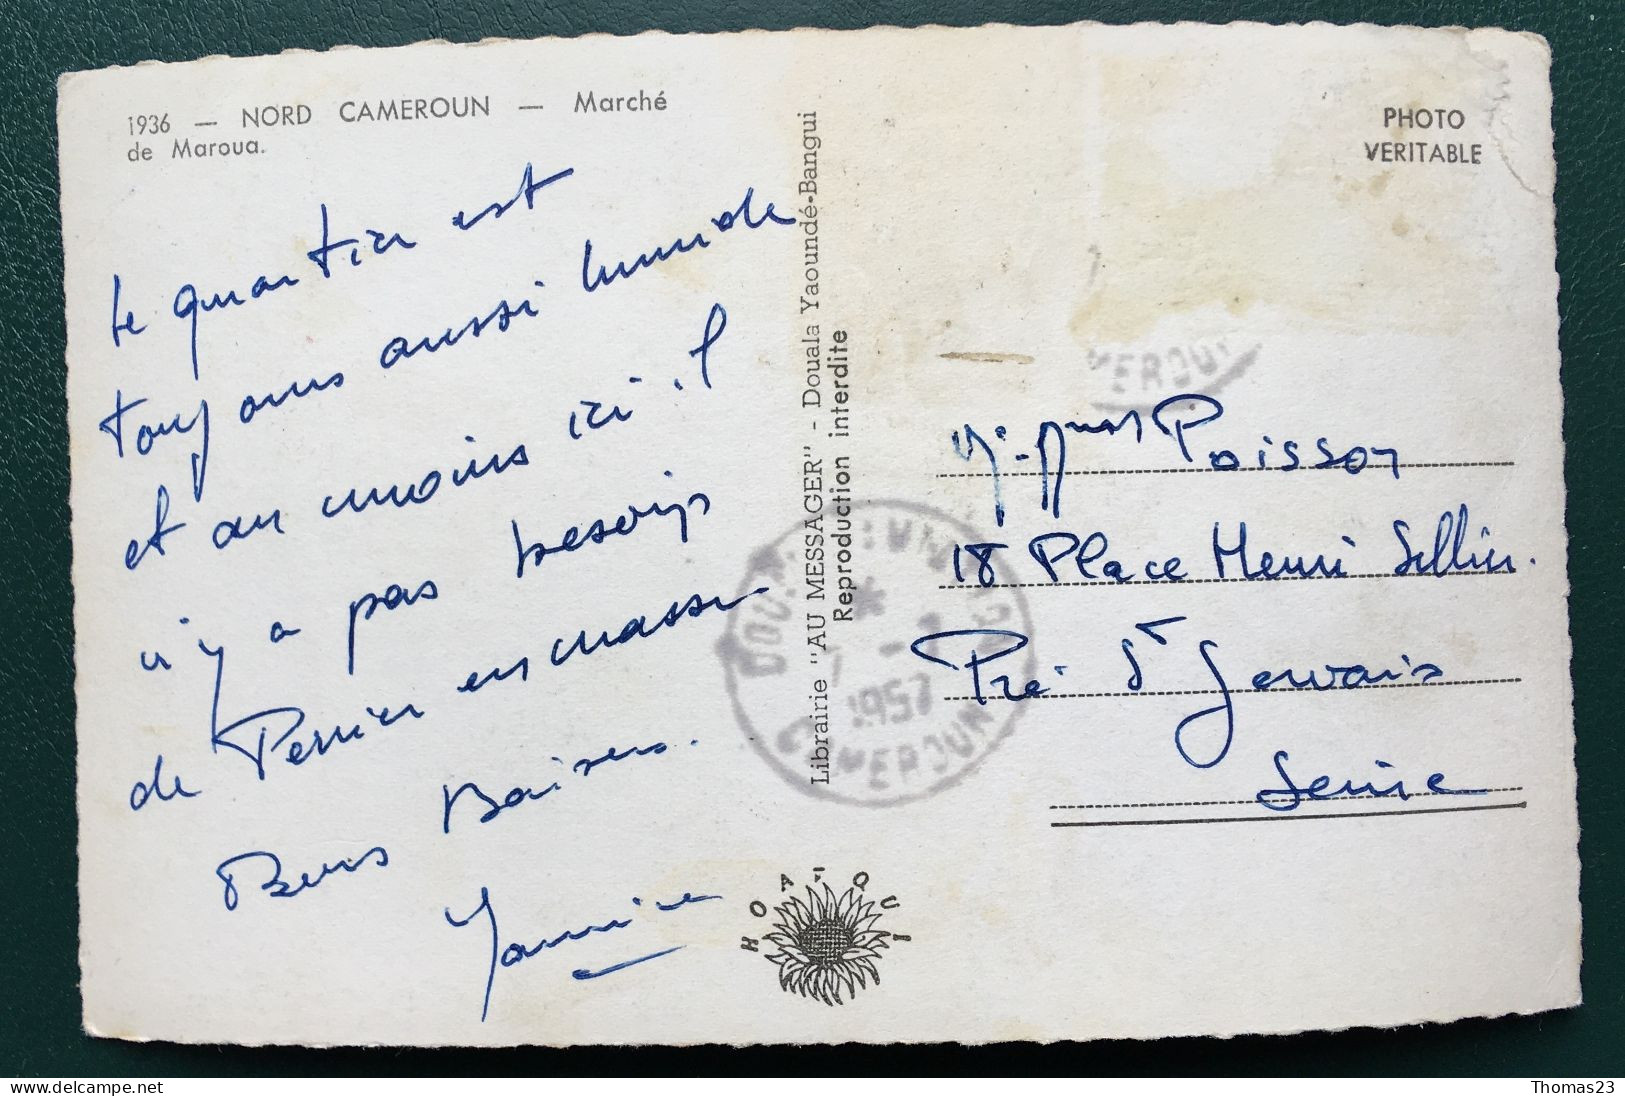 1936 — NORD CAMEROUN — Marché
de Maroua.
Le quartier est
toujours aussi humide
et au moins ici il
n'y a pas besoin
de Perrier en masse
Bons Baisers.
Librairie "AU MESSAGER" - Douala Yaoundé-Bangui
Reproduction interdite
HOA-QUI
PHOTO
VERITABLE
MEROUN
DOUALA
1957
CAMEROUN
Poisson
18 Place Henri Sellier.
Pré St Gervais
Seine
Thomas23